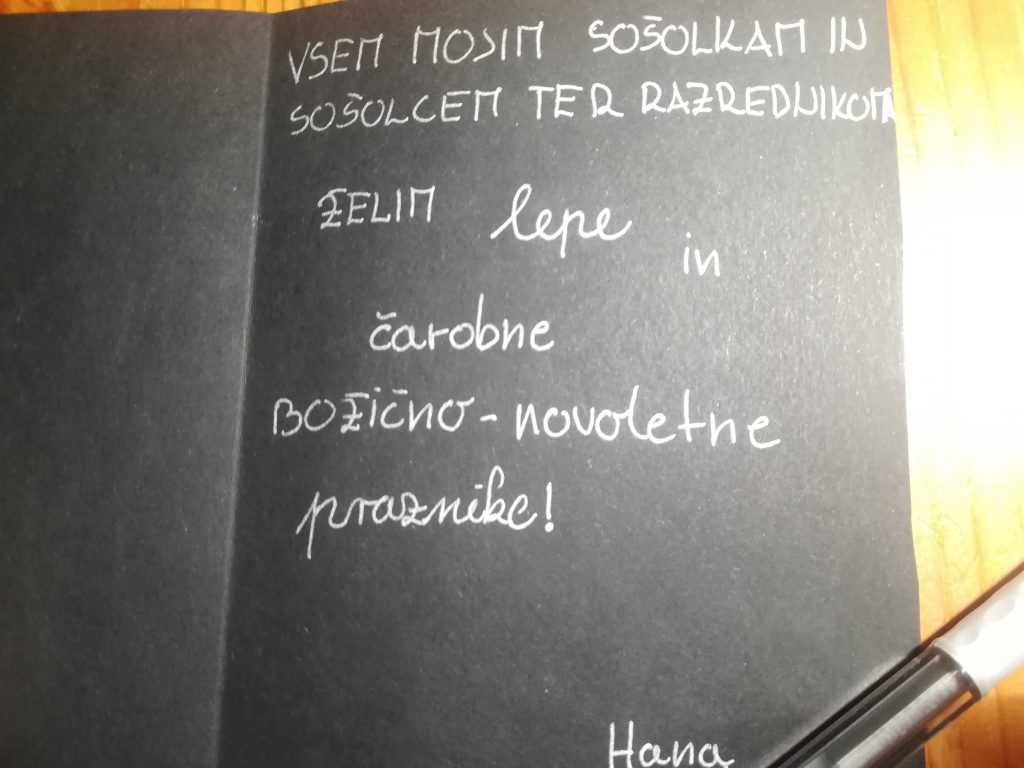 VSEM MOJIM SOŠOLKAM IN
SOŠOLCEM TER RAZREDNIKOMA
ŽELIM lepe in
čarobne
BOŽIČNO-novoletne
praznike!
Hana